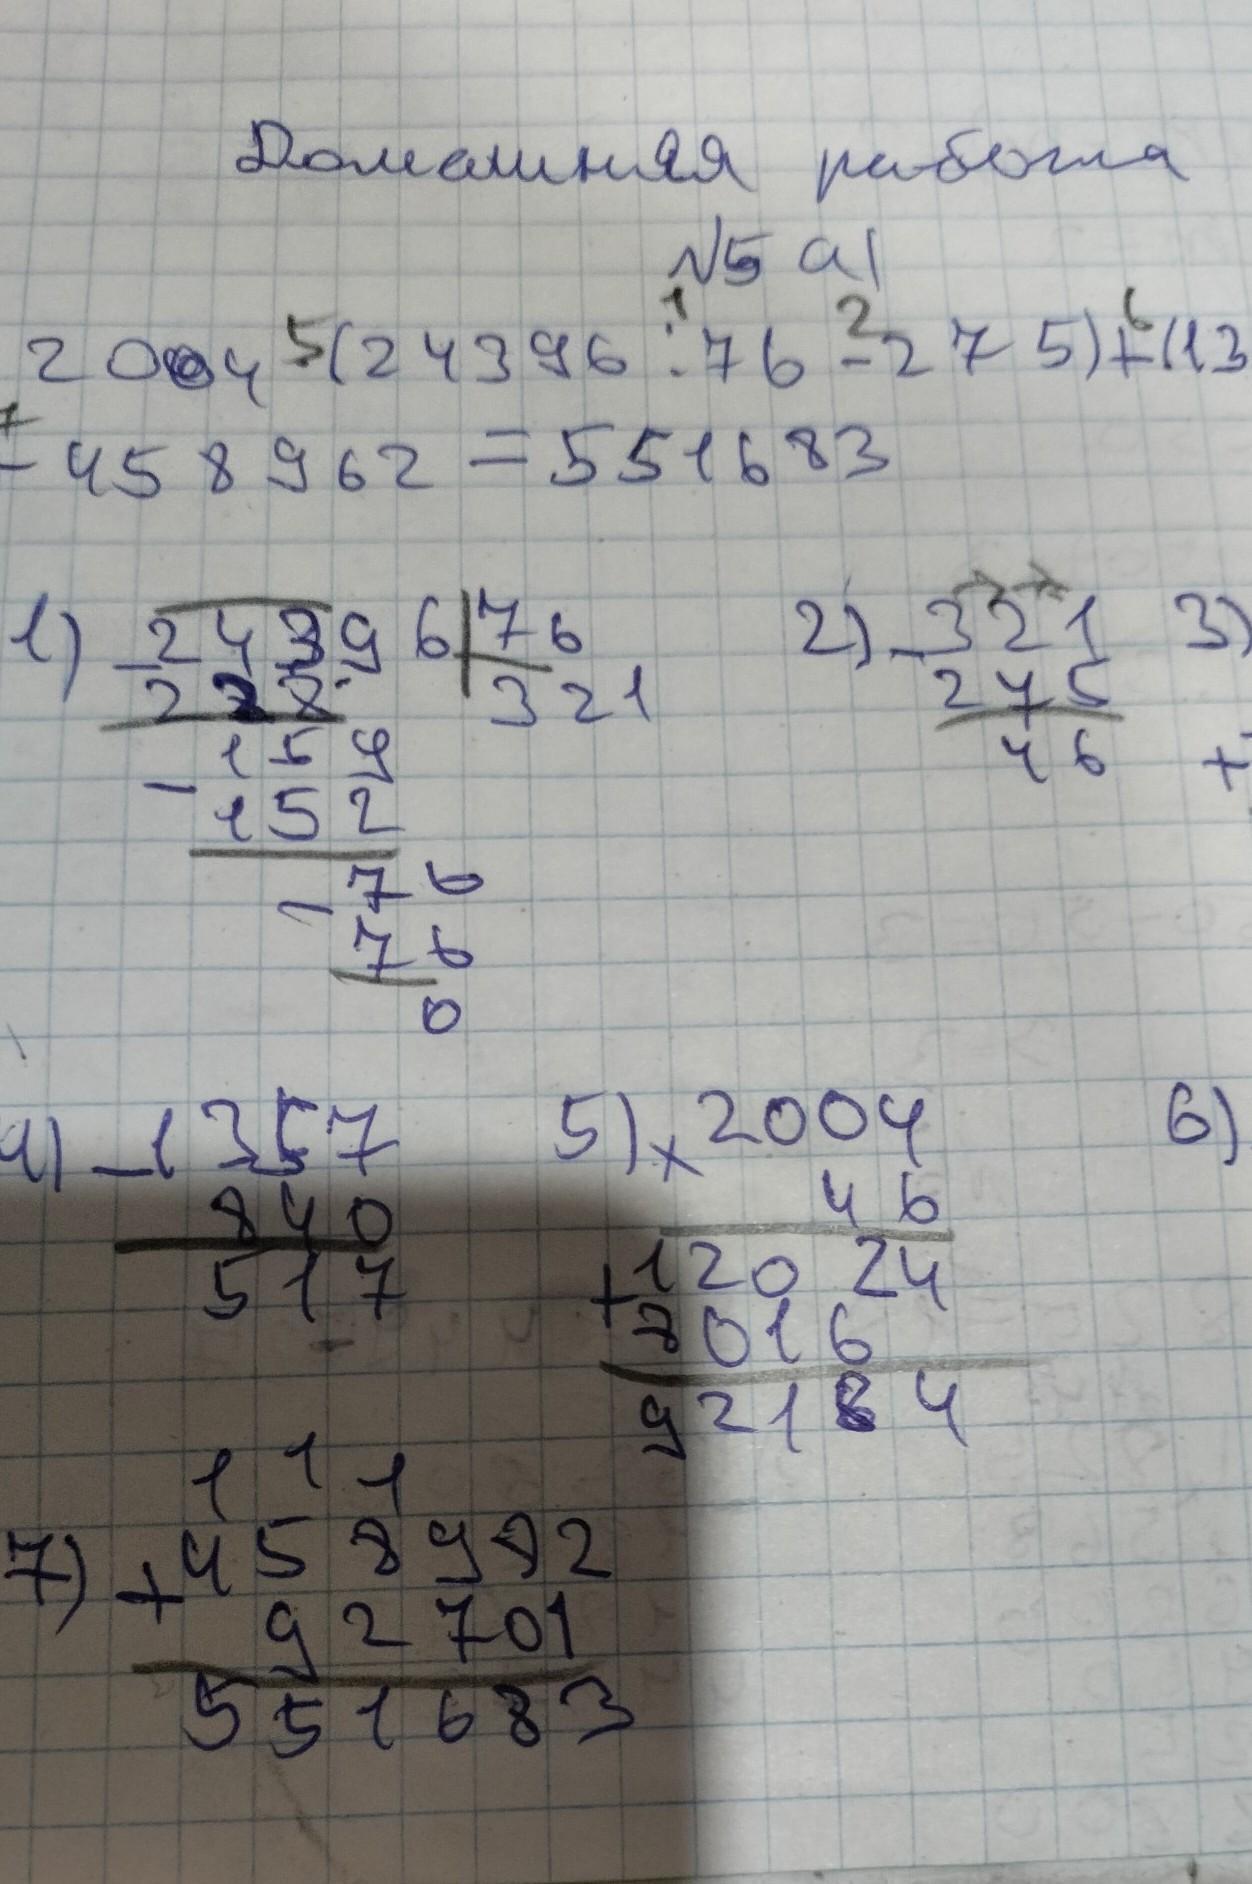 Домашняя работа
№5 а)
1 2 6
2004 5 (24396 : 76 - 275) + (13
7
- 458962 = 551683
1) - 24396 | 76 2) - 321 3)
228 321 275
159 46 +
- 152
- 76
76
0
4) - 1357 5) x 2004 6)
840 46
517 + 12024
8016
92184
1 1 1
7) + 458982
92701
551683